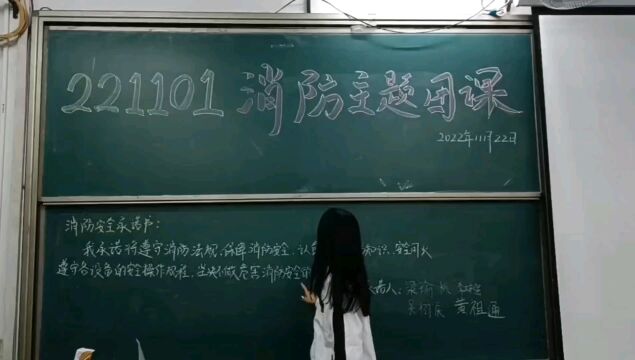 221101 消防主题团课
2022年11月22日
消防安全承诺书：
我承诺将遵守消防法规，消防安全，认知识，安全用火
遵守各设备的安全操作规程，坚决不做危害消防安全的
诺人：梁
黄祖通